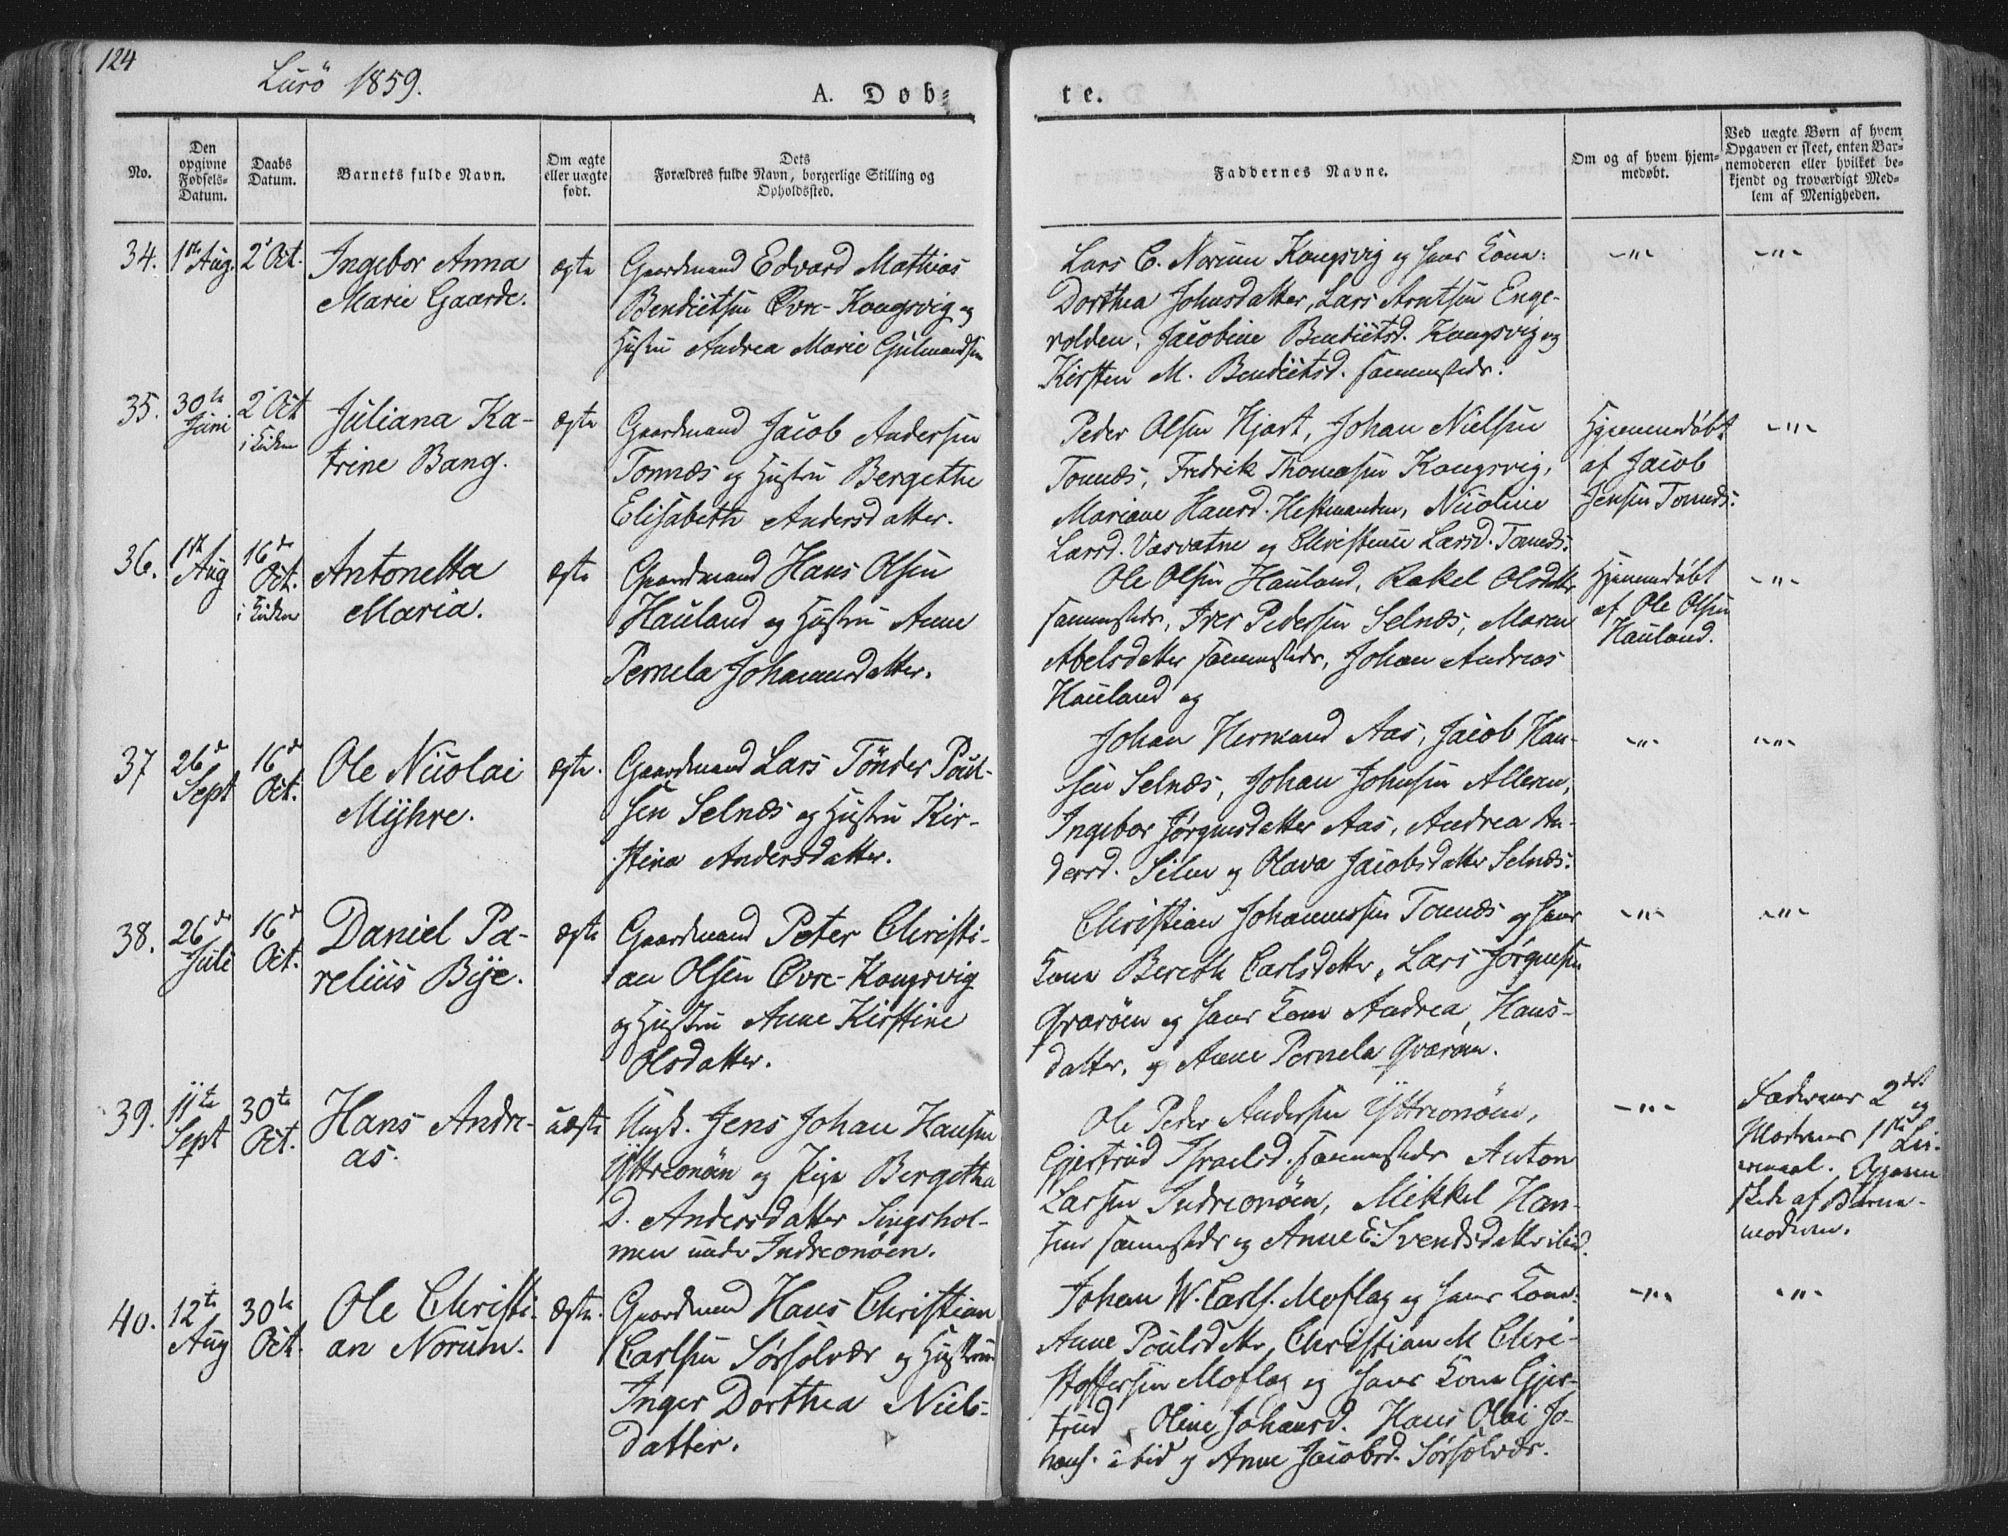 124
Lurö 1859.
A. Döb=
te.
No.
Den opgivne Fødsels-Datum.
Daabs Datum.
Barnets fulde Navn.
Om ægte eller uægte født.
Dets Forældres fulde Navn, borgerlige Stilling og Opholdssted.
Faddernes Navne.
Om og af hvem hjemmedøbt.
Ved uægte Børn af hvem Opgaven er skeet, enten Barnemoderen eller hvilket bekjendt og troværdigt Medlem af Menigheden.
34.
1ste Aug.
2d Oct.
Ingebor Anna
Marie Gaarde.
ægte
Gaardmand Edvard Mathias
Bendictsen Øvre-Kongsvig og
Hustru Andrea Marie Gulmandsen
Lars C. Norum Kongsvig og hans Kone:
Dorthea Johnsdatter, Lars Arntsen Enge-
volden, Jacobine Bendictsd. Kongsvig og
Kirsten M. Bendictsd. sammesteds.
-"-
-"-
35.
30te Juni
2d Oct
i Kirken
Juliana Ka-
trine Bang.
ægte
Gaardmand Jacob Andersen
Tonnæs og Hustru Bergethe
Elisabeth Andersdatter.
Peder Olsen Hjart, Johan Nielsen
Tonnæs, Fredrik Thomassen Kongsvig,
Mariane Hansd. Hestmanden, Nicoline
Larsd. Vasvatne og Christense Larsd. Tonnæs.
Hjemmedøbt
af Jacob
Jensen Tonnæs.
-"-
36.
1ste Aug
16de Oct.
i Kirken
Antonetta
Maria.
ægte
Gaardmand Hans Olsen
Hauland og Hustru Anne
Pernela Johannesdatter.
Ole Olsen Hauland, Rakel Olsdatter
sammesteds, Iver Pedersen Selnæs, Maren
Abelsdatter sammesteds, Johan Andreas
Hauland og
Hjemmedøbt
af Ole Olsen
Hauland.
-"-
37
26d Sept
16d Oct.
Ole Nicolai
Myhre.
ægte.
Gaardmand Lars Tönder Poul-
sen Selnæs og Hustru Kir-
stina Andersdatter.
Johan Hermand Aas, Jacob Han-
sen Selnæs, Johan Johnsen Alleren,
Ingebor Jørgensdatter Aas, Andrea An-
dersd. Silen og Olava Jacobsdatter Selnæs.
-"-
-"-
38.
26de Juli
16d Oct.
Daniel Pa-
relius Bye.
ægte
Gaardmand Peter Christi-
an Olsen Øvre-Kongsvig
og Hustru Anne Kirstine
Olsdatter.
Christian Johannessen Tonnæs og hans
Kone Bereth Carlsdatter, Lars Jørgensen
Qvarøen og hans Kone Andrea Hans-
datter, og Anne Pernela Qvarøen.
-"-
-"-
39.
11te Sept
30te Oct.
Hans Andre-
as.
uægte
Ungk. Jens Johan Hansen
Yttreonøen og Pige Bergetha
D. Andersdatter Singshol-
men under Indreonøen.
Ole Peder Andersen Yttreonøen,
Gjertrud Israelsd. sammesteds Anton
Larsen Indreonøen, Mikkel Han-
sen sammesteds og Anne E. Svendsdatter ibid.
-"-
Faderens 2det og
Moderens 1ste Lei-
ermaal. Opgaven
skede af Barne-
moderen.
40.
12te Aug
30te Oct.
Ole Christi-
an Norum.
ægte.
Gaardmand Hans Christian
Carlsen Sørsolvær og Hustru
Inger Dorthea Niels-
datter.
Johan W. Carls. Moflag og hans Kone
Anne Poulsdatter, Christian M Chri-
stoffersen Moflag og hans Kone Gjer-
trud, Oline Johansd. Hans Olai Jo-
hans. ibid og Anne Jacobsd. Sørsolvær.
-"-
-"-